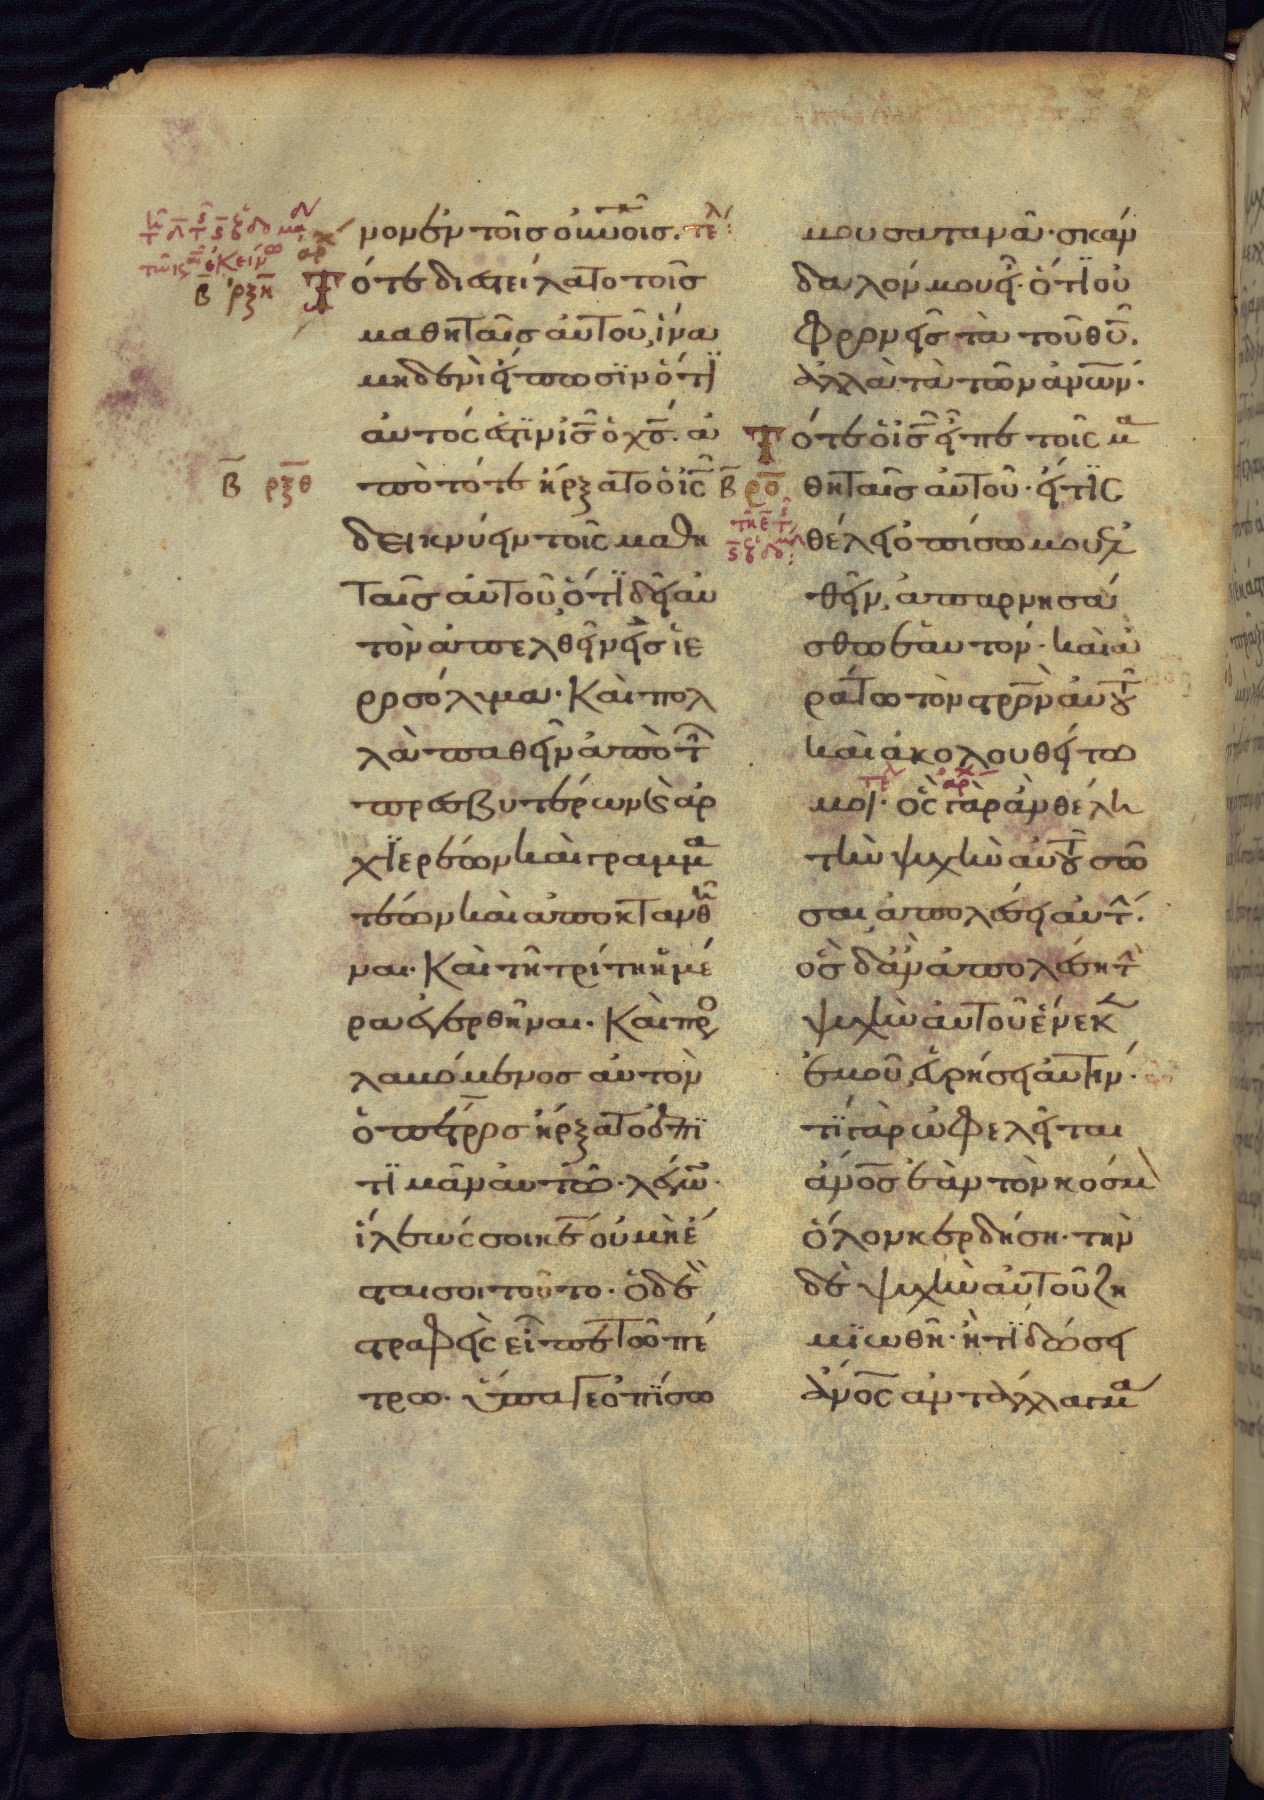 μενον ἐν τοῖσ οὐνοῖσ.
Τότε διεστείλατο τοῖσ
μαθηταῖσ αὐτοῦ, ἵνα
μηδενὶ εἴπωσϊν ὅτϊ
αὐτός ἐστϊν ἰσ ὁ χσ. ἀ
β ρξη
β ρξθ
πὸ τότε ἤρξατο ὁ ἰς
δεικνύειν τοῖς μαθη
ταῖσ αὐτοῦ, ὅτϊ δεῖ αὐ
τὸν ἀπελθεῖν εἰσ ἱε
ροσόλυμα. Καὶ πολ
λὰ παθεῖν ἀπὸ τ
πρεσβυτέρων ϗ ἀρ
χϊερέων καὶ γραμμα
τέων καὶ ἀποκτανθη
ναι. Καὶ τῆ τρίτη ἡμέ
ρα ἐγερθῆναι. Καὶ προ
λαβόμενοσ αὐτὸν
ὁ πέτροσ ἤρξατο ἐπϊ
τϊμᾶν αὐτῶ. λέγων.
ἵλεώς σοι κε οὐ μὴ ἔ
σται σοι τοῦτο. ὁ δὲ
στραφεὶς εἶπε τῶ πέ
τρω. ὕπαγε ὀπϊσω
μου σατανᾶ. σκάν
δαλόν μου εἶ. ὅτϊ οὐ
φρονεῖσ τὰ τοῦ θυ.
ἀλλὰ τὰ τῶν ἀνων.
Τότε ὁ ἰσ εἶπε τοῖς μα
β ρο
θηταῖσ αὐτοῦ. εἴ τϊς
θέλει ὀπίσω μου ἐλ
θεῖν, ἀπαρνησά
σθω ἑαυτόν. καὶ ἀ
ράτω τὸν στρον αὐτου
καὶ ἀκολουθείτω
μοι. ὃς γὰρ ἂν θέλη
τὴν ψυχὴν αὐτου σῶ
σαι, ἀπολέσει αὐτ.
ὃσ δ' ἂν ἀπολέση τ
ψυχὴν αὐτοῦ ἕνεκ
ἐμοῦ, εὑρήσει αὐτην.
τϊ γὰρ ὠφελεῖται
ἀνοσ ἐὰν τὸν κόσμ
ὅλον κερδήση. τὴν
δὲ ψυχὴν αὐτοῦ ζη
μϊωθῆ. ἢ τϊ δώσει
ἀνος ἀντάλλαγμα